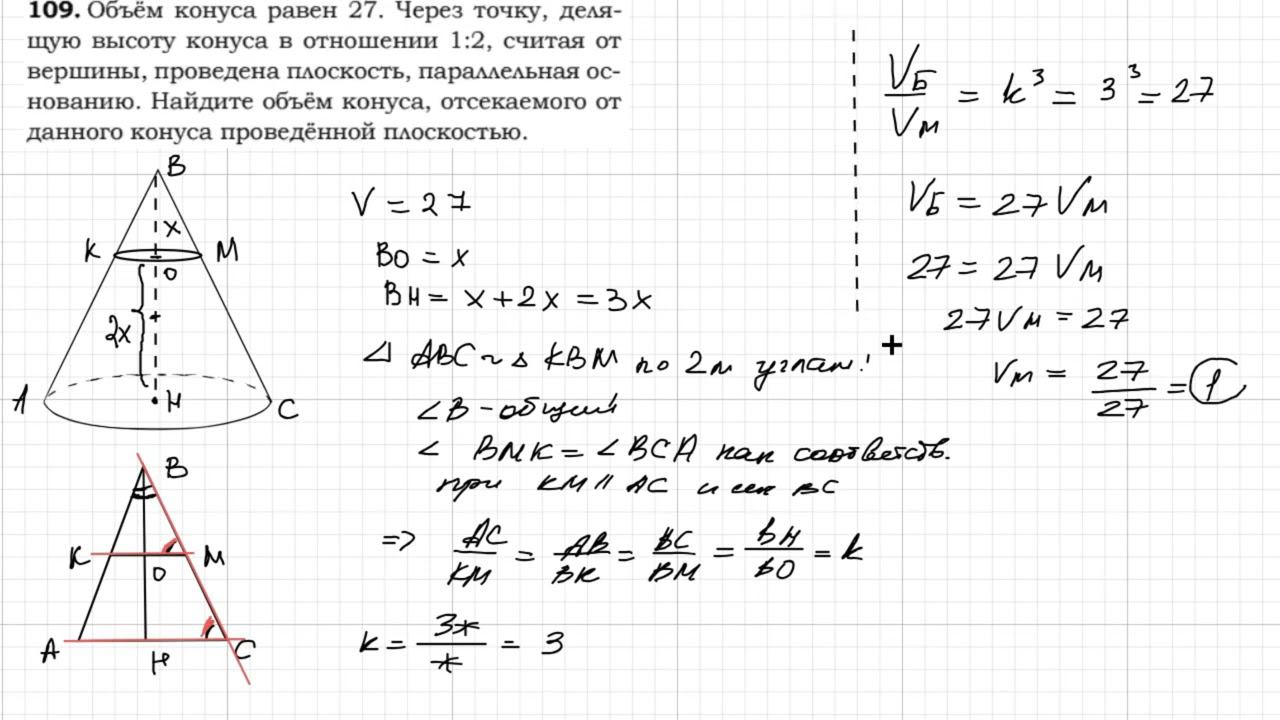 109. Объём конуса равен 27. Через точку, деля-
щую высоту конуса в отношении 1:2, считая от
вершины, проведена плоскость, параллельная ос-
нованию. Найдите объём конуса, отсекаемого от
данного конуса проведённой плоскостью.
B
x
K M
O
2x
A H C
B
K M
O
A H C
V = 27
BO = x
BH = x + 2x = 3x
△ ABC ~ △ KBM по 2м углам:
∠B - общий
∠ BMK = ∠BCA как соответств.
при KM || AC и сек BC
=> AC/KM = AB/BK = BC/BM = BH/BO = k
k = 3x/x = 3
Vб/Vм = k³ = 3³ = 27
Vб = 27 Vм
27 = 27 Vм
27 Vм = 27
Vм = 27/27 = 1